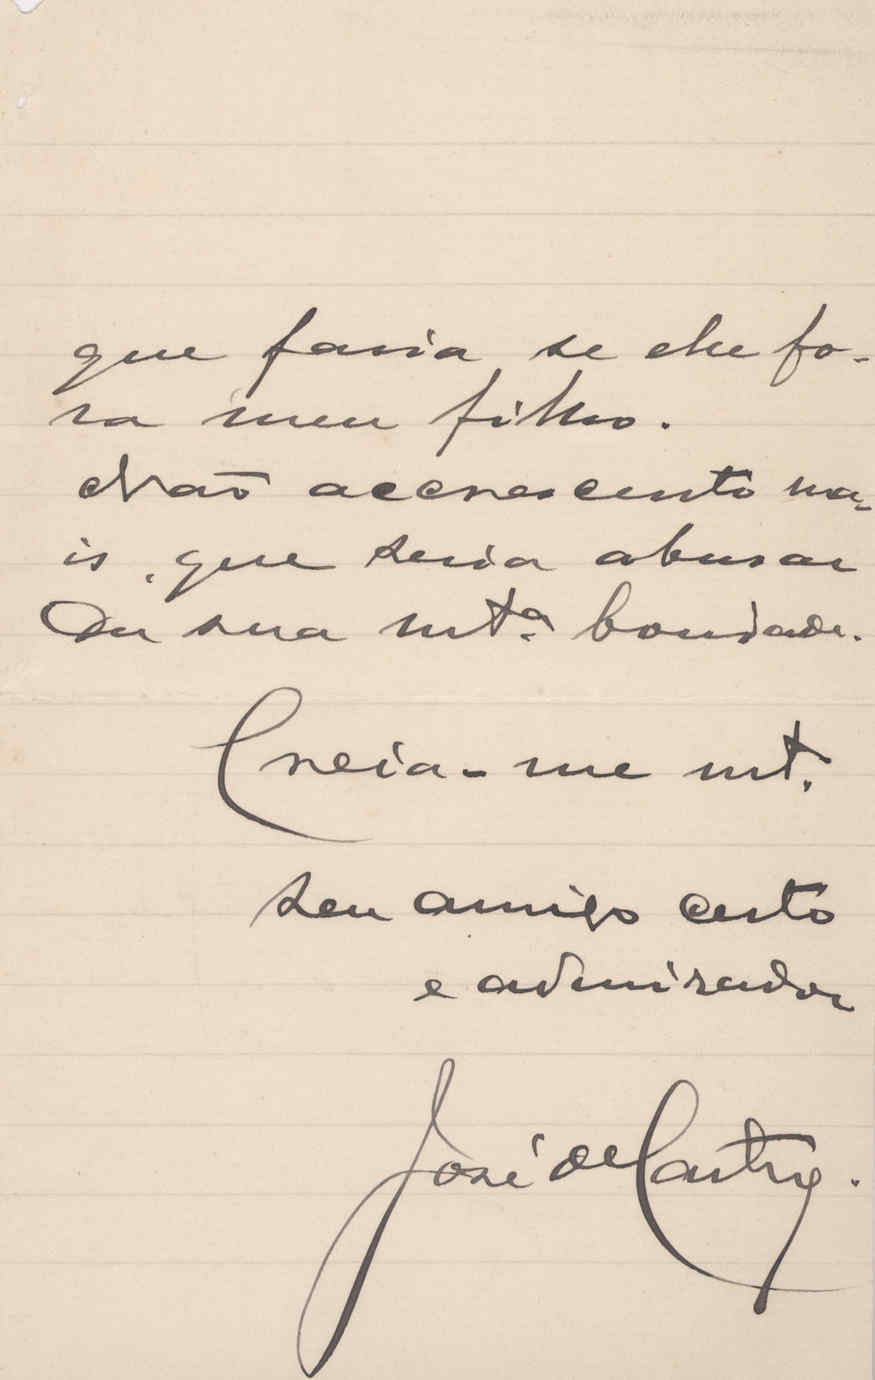 que faria se elle fo-
ra meu filho.
Não accrescento ma-
is, que seria abusar
da sua mtª. bondade.
Creia-me mt.
seu amigo certo
e admirador
José de Castro.